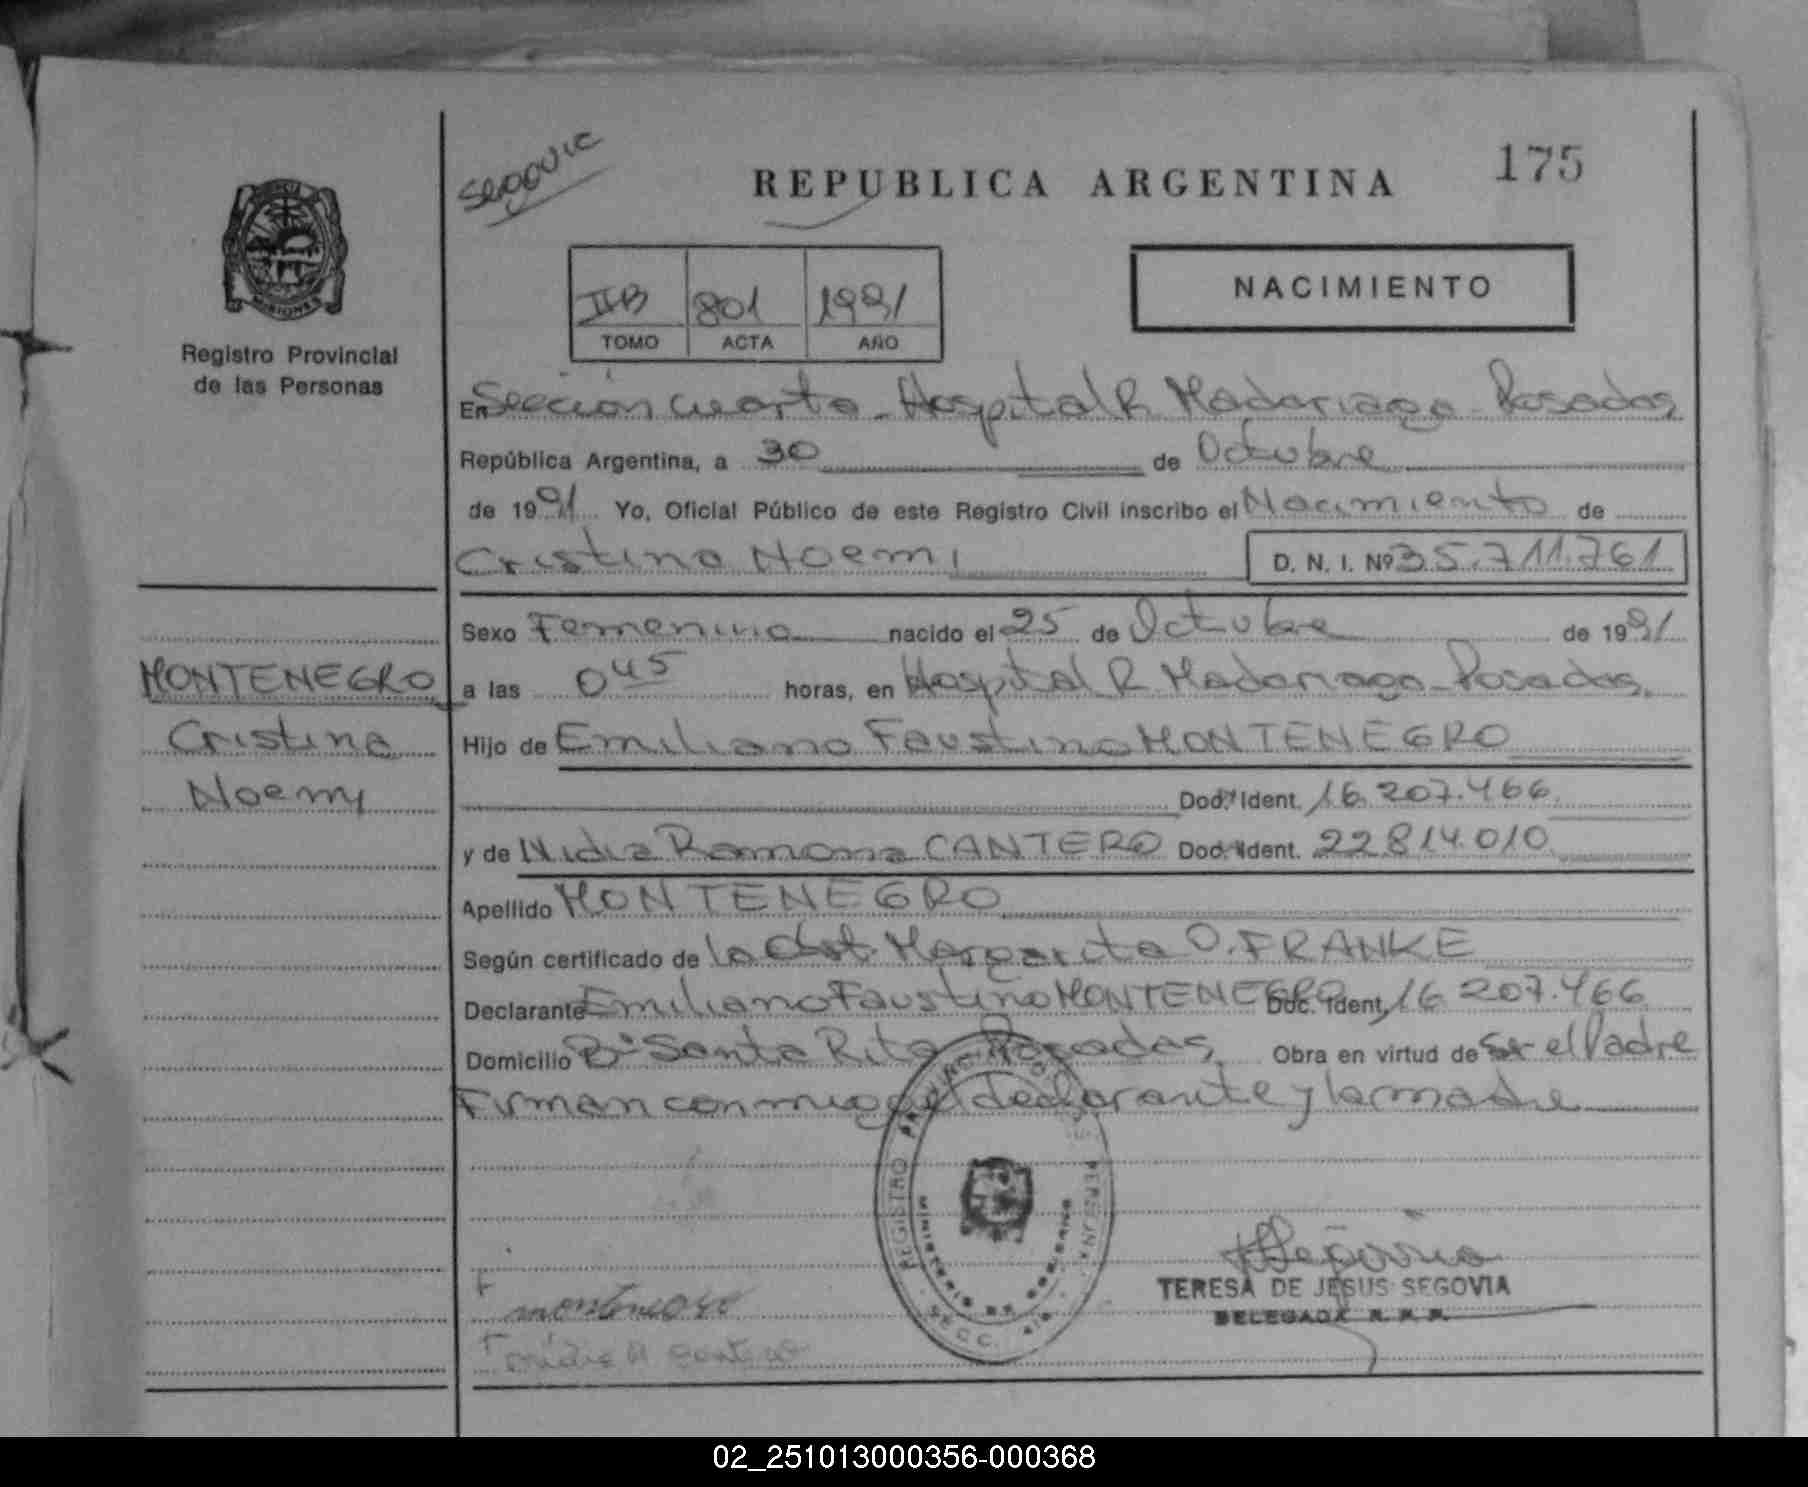 175
Segovia
REPUBLICA ARGENTINA
MISIONES
Registro Provincial
de las Personas
NACIMIENTO
IIB 801 1991
TOMO ACTA AÑO
En Sección Cuarta - Hospital R Madariaga - Posadas
República Argentina, a 30 de Octubre
de 1991 Yo, Oficial Público de este Registro Civil inscribo el Nacimiento de
Cristina Noemi D. N. I. Nº 35.711.761
Sexo Femenino nacido el 25 de Octubre de 1991
MONTENEGRO
Cristina
Noemi
a las 0 45 horas, en Hospital R Madariaga - Posadas.
Hijo de Emiliano Faustino MONTENEGRO
Doc. Ident. 16.207.466
y de Nidia Ramona CANTERO Doc. Ident. 22.814.010
Apellido MONTENEGRO
Según certificado de la Obst. Margarita O. FRANKE
Declarante Emiliano Faustino MONTENEGRO Doc. Ident. 16.207.466
Domicilio Bº Santa Rita Posadas Obra en virtud de ser el Padre
Firman conmigo el declarante y la madre
REGISTRO PROVINCIAL DE LAS PERSONAS
MINISTERIO DE GOBIERNO
SECC. 4ta
Segovia
TERESA DE JESUS SEGOVIA
DELEGADA R. P. P.
F montenegro
F nidia R cantero
02_251013000356-000368